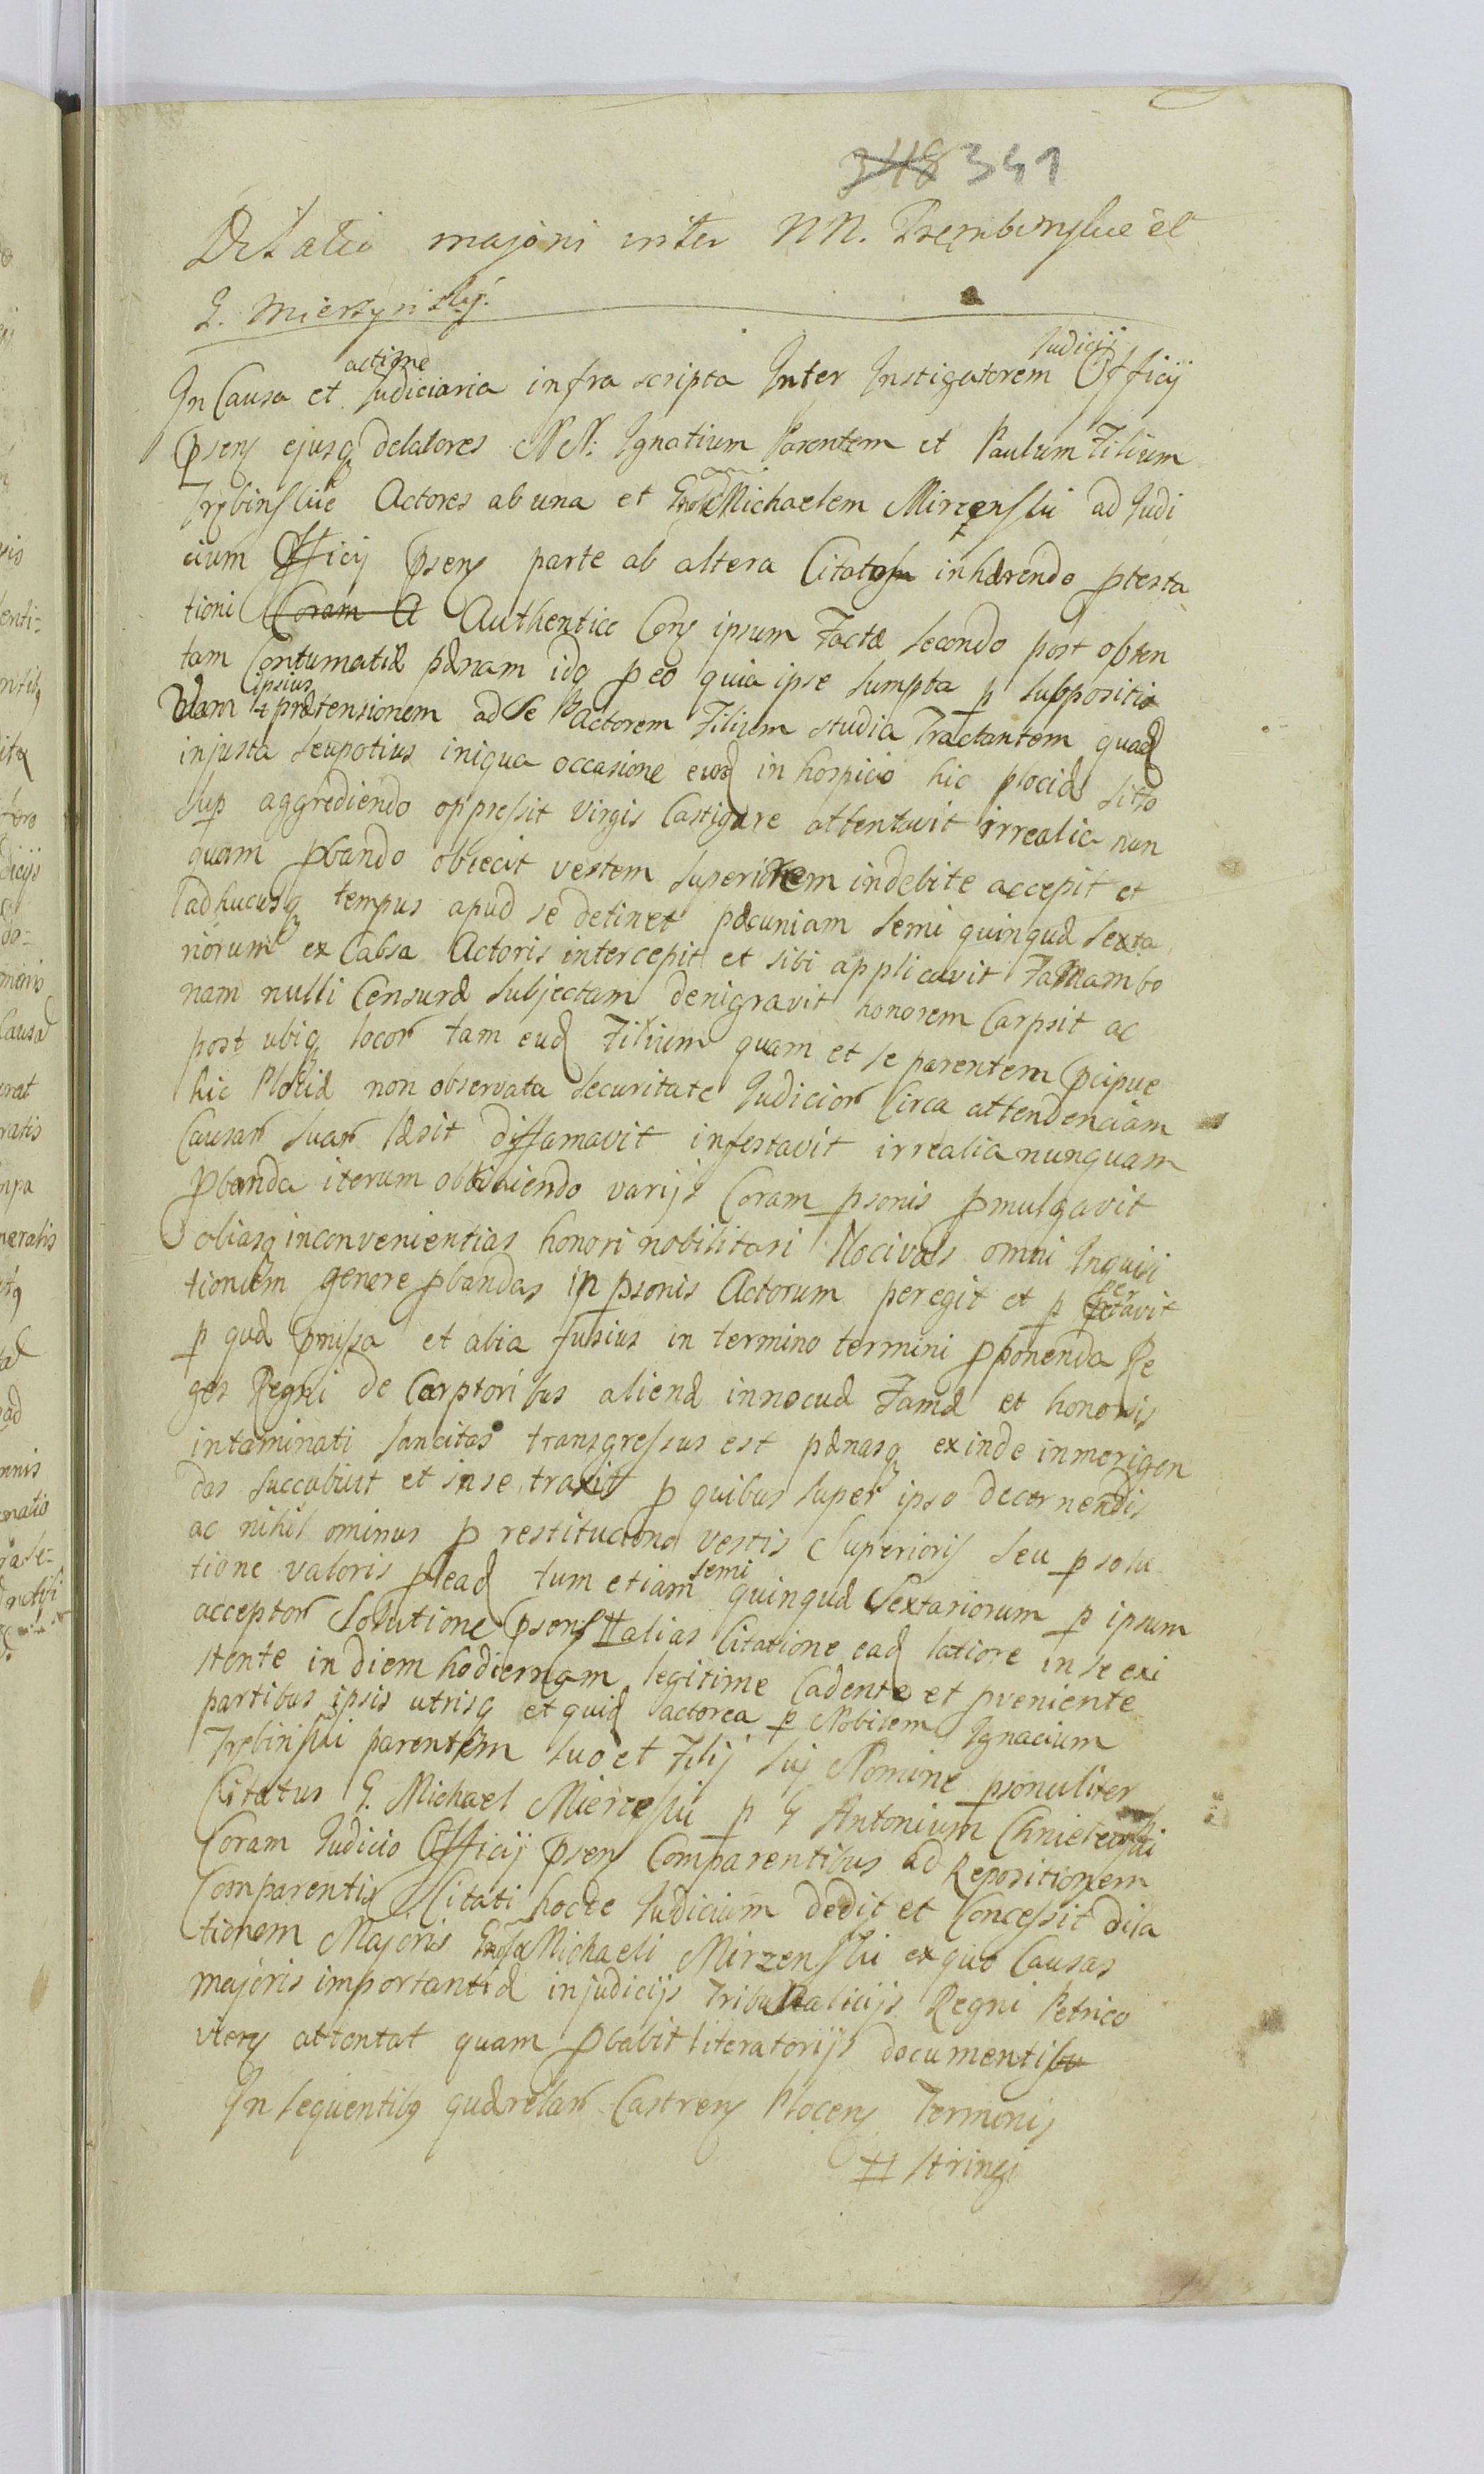 348 341
Dilatio majoris inter NN. Trembinskie et
G. Mierzynskij.
actione Judicij
In Causa et Judiciaria infra scripta Inter Instigatorem Officij
Pſens ejusq delatores NN: Ignatium Parentem et Paulum Filium
Trębinſkie Actores ab una et Michaelem Mirzenſki ad Judi
cium Officij Pſens parte ab altera Citatum inhærendo ptesta
tioni Coram A Authentice Cons ipsum Factæ secondo post obten
tam Contumatiæ pænam idq peo quia ipse sumpta p suppositio
ipsius
prætensionem ad se Actorem Filium studia Tractantem quad
injusta seupotius iniqua occasione eund in hospicio hic plociæ sitto
sup aggrediendo oppreſsit virgis Castigare attentavit irrealia nun
quam pbando obiecit vestem superiorem indebite accepit et
adhucusq tempus apud se detinet pæcuniam semi quinquæ sexta
riorum ex Cabsa Actoris intercepit et sibi applicavit Famam bo
nam nulli Censuræ subjectam denigravit honorem Carpsit ac
post ubiq locor tam eud Filium quam et se parentem Pcipue
hic Plociæ non observata securitate Judicior Circa attendenciam
Causar suar læsit diffamavit infestavit irrealia nunquam
Pbanda iterum obbiiciendo varijs Coram psonis pmulgavit
aliasq inconvenientias honori nobilitari Nocivas omni Inquisi
tionum genere pbandas in psonis Actorum peregit et p petravit
p quæ Pmissa et alia fusius in termino termini pponenda Re
ges Regni de Carptoribus alienæ innocuæ Famæ et honoris
intaminati sancitas transgreſsus est pænasq exinde inmerigen
das succubuit et in se traxit p quibus super ipso decernendis
ac nihil ominus p restitucione vestis superioris seu p solu
semi
tione valoris plead tum etiam quinquæ sextariorum p ipsum
acceptor Solutione Pſens # alias Citatione ead latiore in se exi
stente in diem hodiernam legitime Cadente et pveniente
partibus ipsis utrisq et quid actorea p Nobilem Ignacium
Trębinſki parentem suo et Filij sui Nomine psonaliter
Citatus G. Michael Mierzeſki p G Antonium
Coram Judicio Officij Pſens Comparentibus ad Repositionem
Comparentis Citati hocce Judicium dedit et Conceſsit dila
tionem Majoris Michaeli Mirzenſki ex quo Causas
majoris importantiæ injudicijs Tribunalicijs Regni Petrico
viens attentat quam pbabit literatorijs documentis
In sequentibq quærelar Castrens Plocens Terminis
# stringi